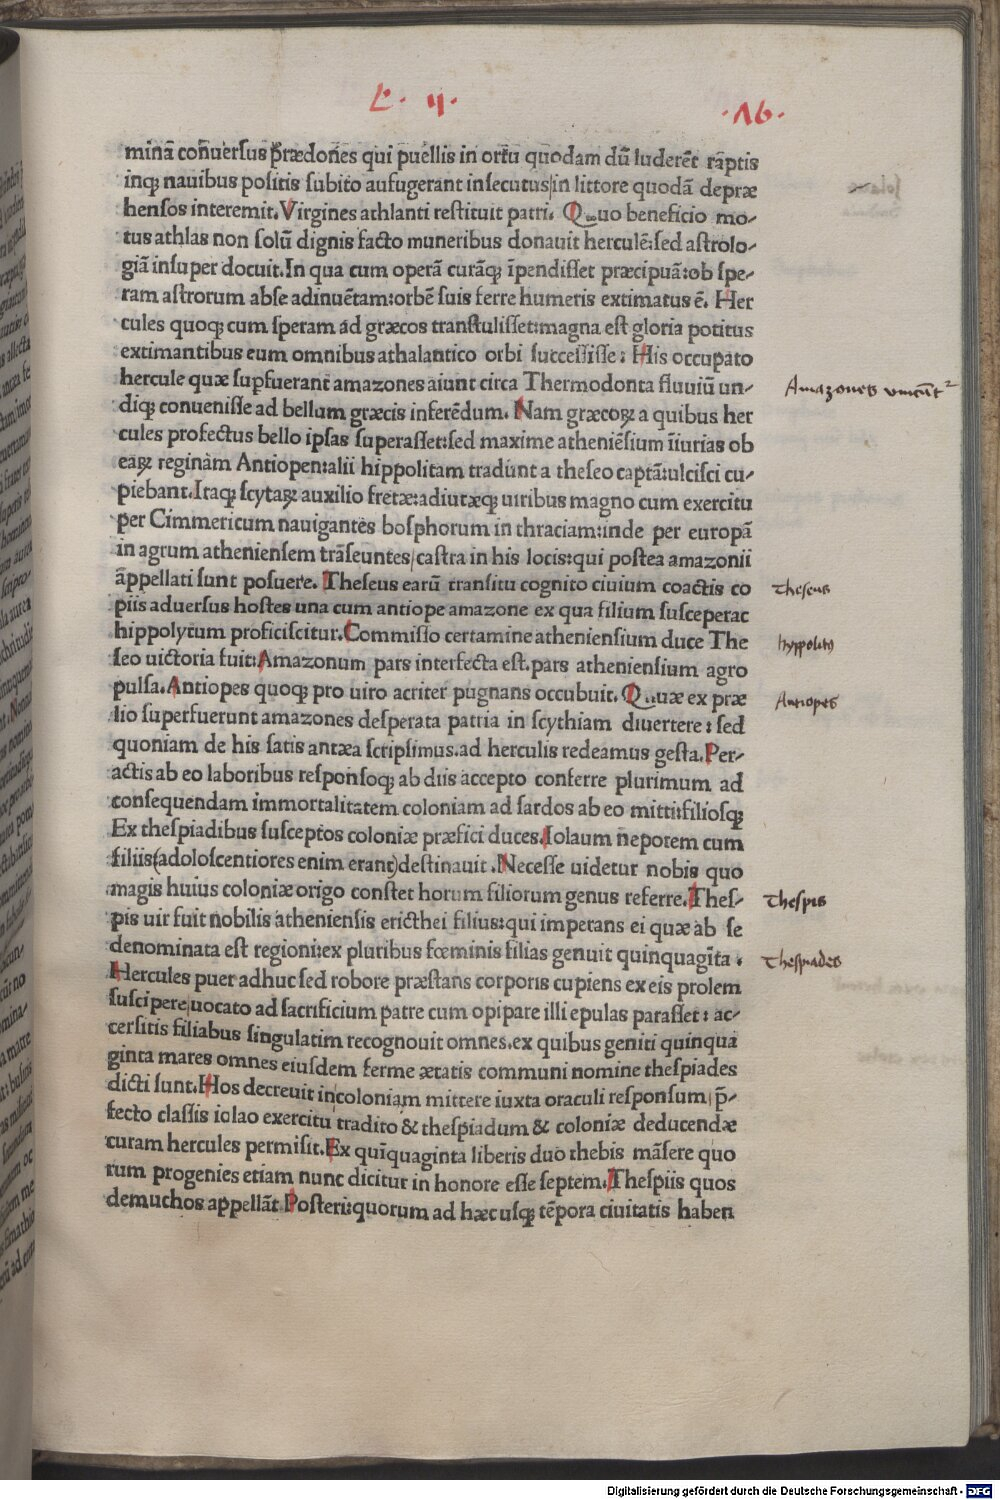 L. 4. .16.
minā con̄uersus prædones qui puellis in ortu quodam dū luderēt raptis
inqꝫ nauibus positis subito aufugerant insecutus in littore quodā depræ
hensos interemit. Virgines athlanti restituit patri. Quo beneficio mo-
tus athlas non solū dignis facto muneribus donauit herculē: sed astrolo-
giā insuper docuit. In qua cum operā curāqꝫ īpendisset præcipuā: ob spe-
ram astrorum abse adinuētam: orbē suis ferre humeris extimatus ē. Her
cules quoqꝫ cum speram ad græcos transtulisset: magna est gloria potitus
extimantibus eum omnibus athalantico orbi successisse: His occupato
hercule quæ supfuerant amazones aiunt circa Thermodonta fluuiū un-
diqꝫ conuenisse ad bellum græcis inferēdum. Nam græcoꝝ a quibus her
cules profectus bello ipsas superasset: sed maxime atheniēsium īiurias ob
eaꝝ reginam Antiopen: alii hippolitam tradunt a theseo captā: ulcisci cu-
piebant. Itaqꝫ scytaꝝ auxilio fretæ: adiutæqꝫ uiribus magno cum exercitu
per Cimmericum nauigantes bosphorum in thraciam: inde per europā
in agrum atheniensem trāseuntes castra in his locis: qui postea amazonii
āppellati sunt posuere. Theseus earū transitu cognito ciuium coactis co
piis aduersus hostes una cum antiope amazone ex qua filium susceperac
hippolytum proficiscitur. Commisso certamine atheniensium duce The
seo uictoria fuit: Amazonum pars interfecta est. pars atheniensium agro
pulsa. Antiopes quoqꝫ pro uiro acriter pugnans occubuit. Quæ ex præ
lio superfuerunt amazones desperata patria in scythiam diuertere: sed
quoniam de his satis antæa scripsimus. ad herculis redeamus gesta. Per-
actis ab eo laboribus responsoqꝫ ab diis accepto conferre plurimum ad
consequendam immortalitatem coloniam ad sardos ab eo mitti: filiosqꝫ
Ex thespiadibus susceptos coloniæ præfici duces. Iolaum nepotem cum
filiis (adoloscentiores enim erant) destinauit. Necesse uidetur nobis quo
magis huius coloniæ origo constet horum filiorum genus referre. Thes-
pis uir fuit nobilis atheniensis ericthei filius: qui imperans ei quæ ab se
denominata est regioni: ex pluribus fœminis filias genuit quinquagīta.
Hercules puer adhuc sed robore præstans corporis cupiens ex eis prolem
suscipere uocato ad sacrificium patre cum opipare illi epulas parasset: ac-
cersitis filiabus singulatim recognouit omnes. ex quibus geniti quinqua
ginta mares omnes eiusdem ferme ætatis communi nomine thespiades
dicti sunt. Hos decreuit in coloniam mittere iuxta oraculi responsum p̄-
fecto classis iolao exercitu tradito & thespiadum & coloniæ deducendæ
curam hercules permisit. Ex quīquaginta liberis duo thebis māsere quo
rum progenies etiam nunc dicitur in honore esse septem. Thespiis quos
demuchos appellāt Posteri: quorum ad hæc usqꝫ tēpora ciuitatis haben
Amazones
Theseus
hyppolitꝰ
Antiopes
Thespis
Thespiades
Digitalisierung gefördert durch die Deutsche Forschungsgemeinschaft - DFG